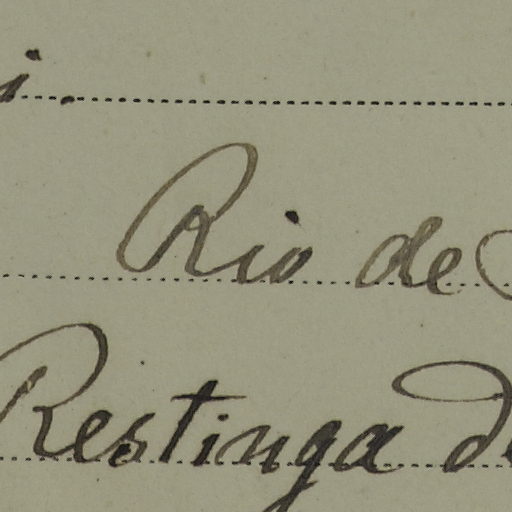 i.
Rio de
Restinga de